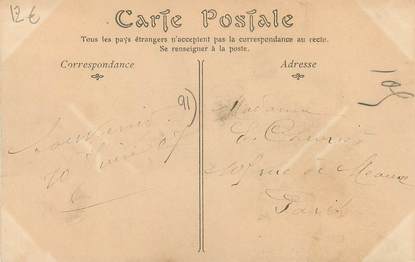 12€
Carte Postale
Tous les pays étrangers n'acceptent pas la correspondance au recto.
Se renseigner à la poste.
Correspondance
Adresse
91)
Souvenir
Madame
rue de Meaux
Paris